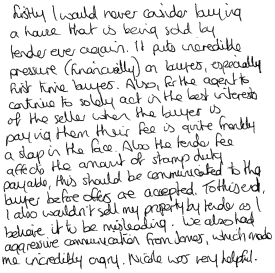 Firstly I would never consider buying
a house that is being sold by
tender ever again. It puts incredible
pressure (financially) on buyers, especially
first time buyers. Also, for the agent to
continue to solely act in the best interests
of the seller when the buyer is
paying them their fee is quite frankly
a slap in the face. Also the tender fee
affects the amount of stamp duty
payable, this should be communicated to the
buyer before offers are accepted. To this end,
I also wouldn't sell my property by tender as I
believe it to be misleading. We also had
aggressive communication from James, which made
me incredibly angry. Nicole was very helpful.